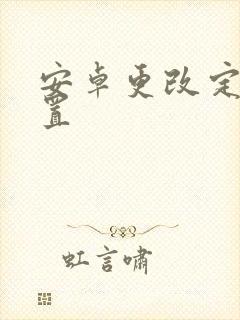 安卓更改定
置
虹言啸